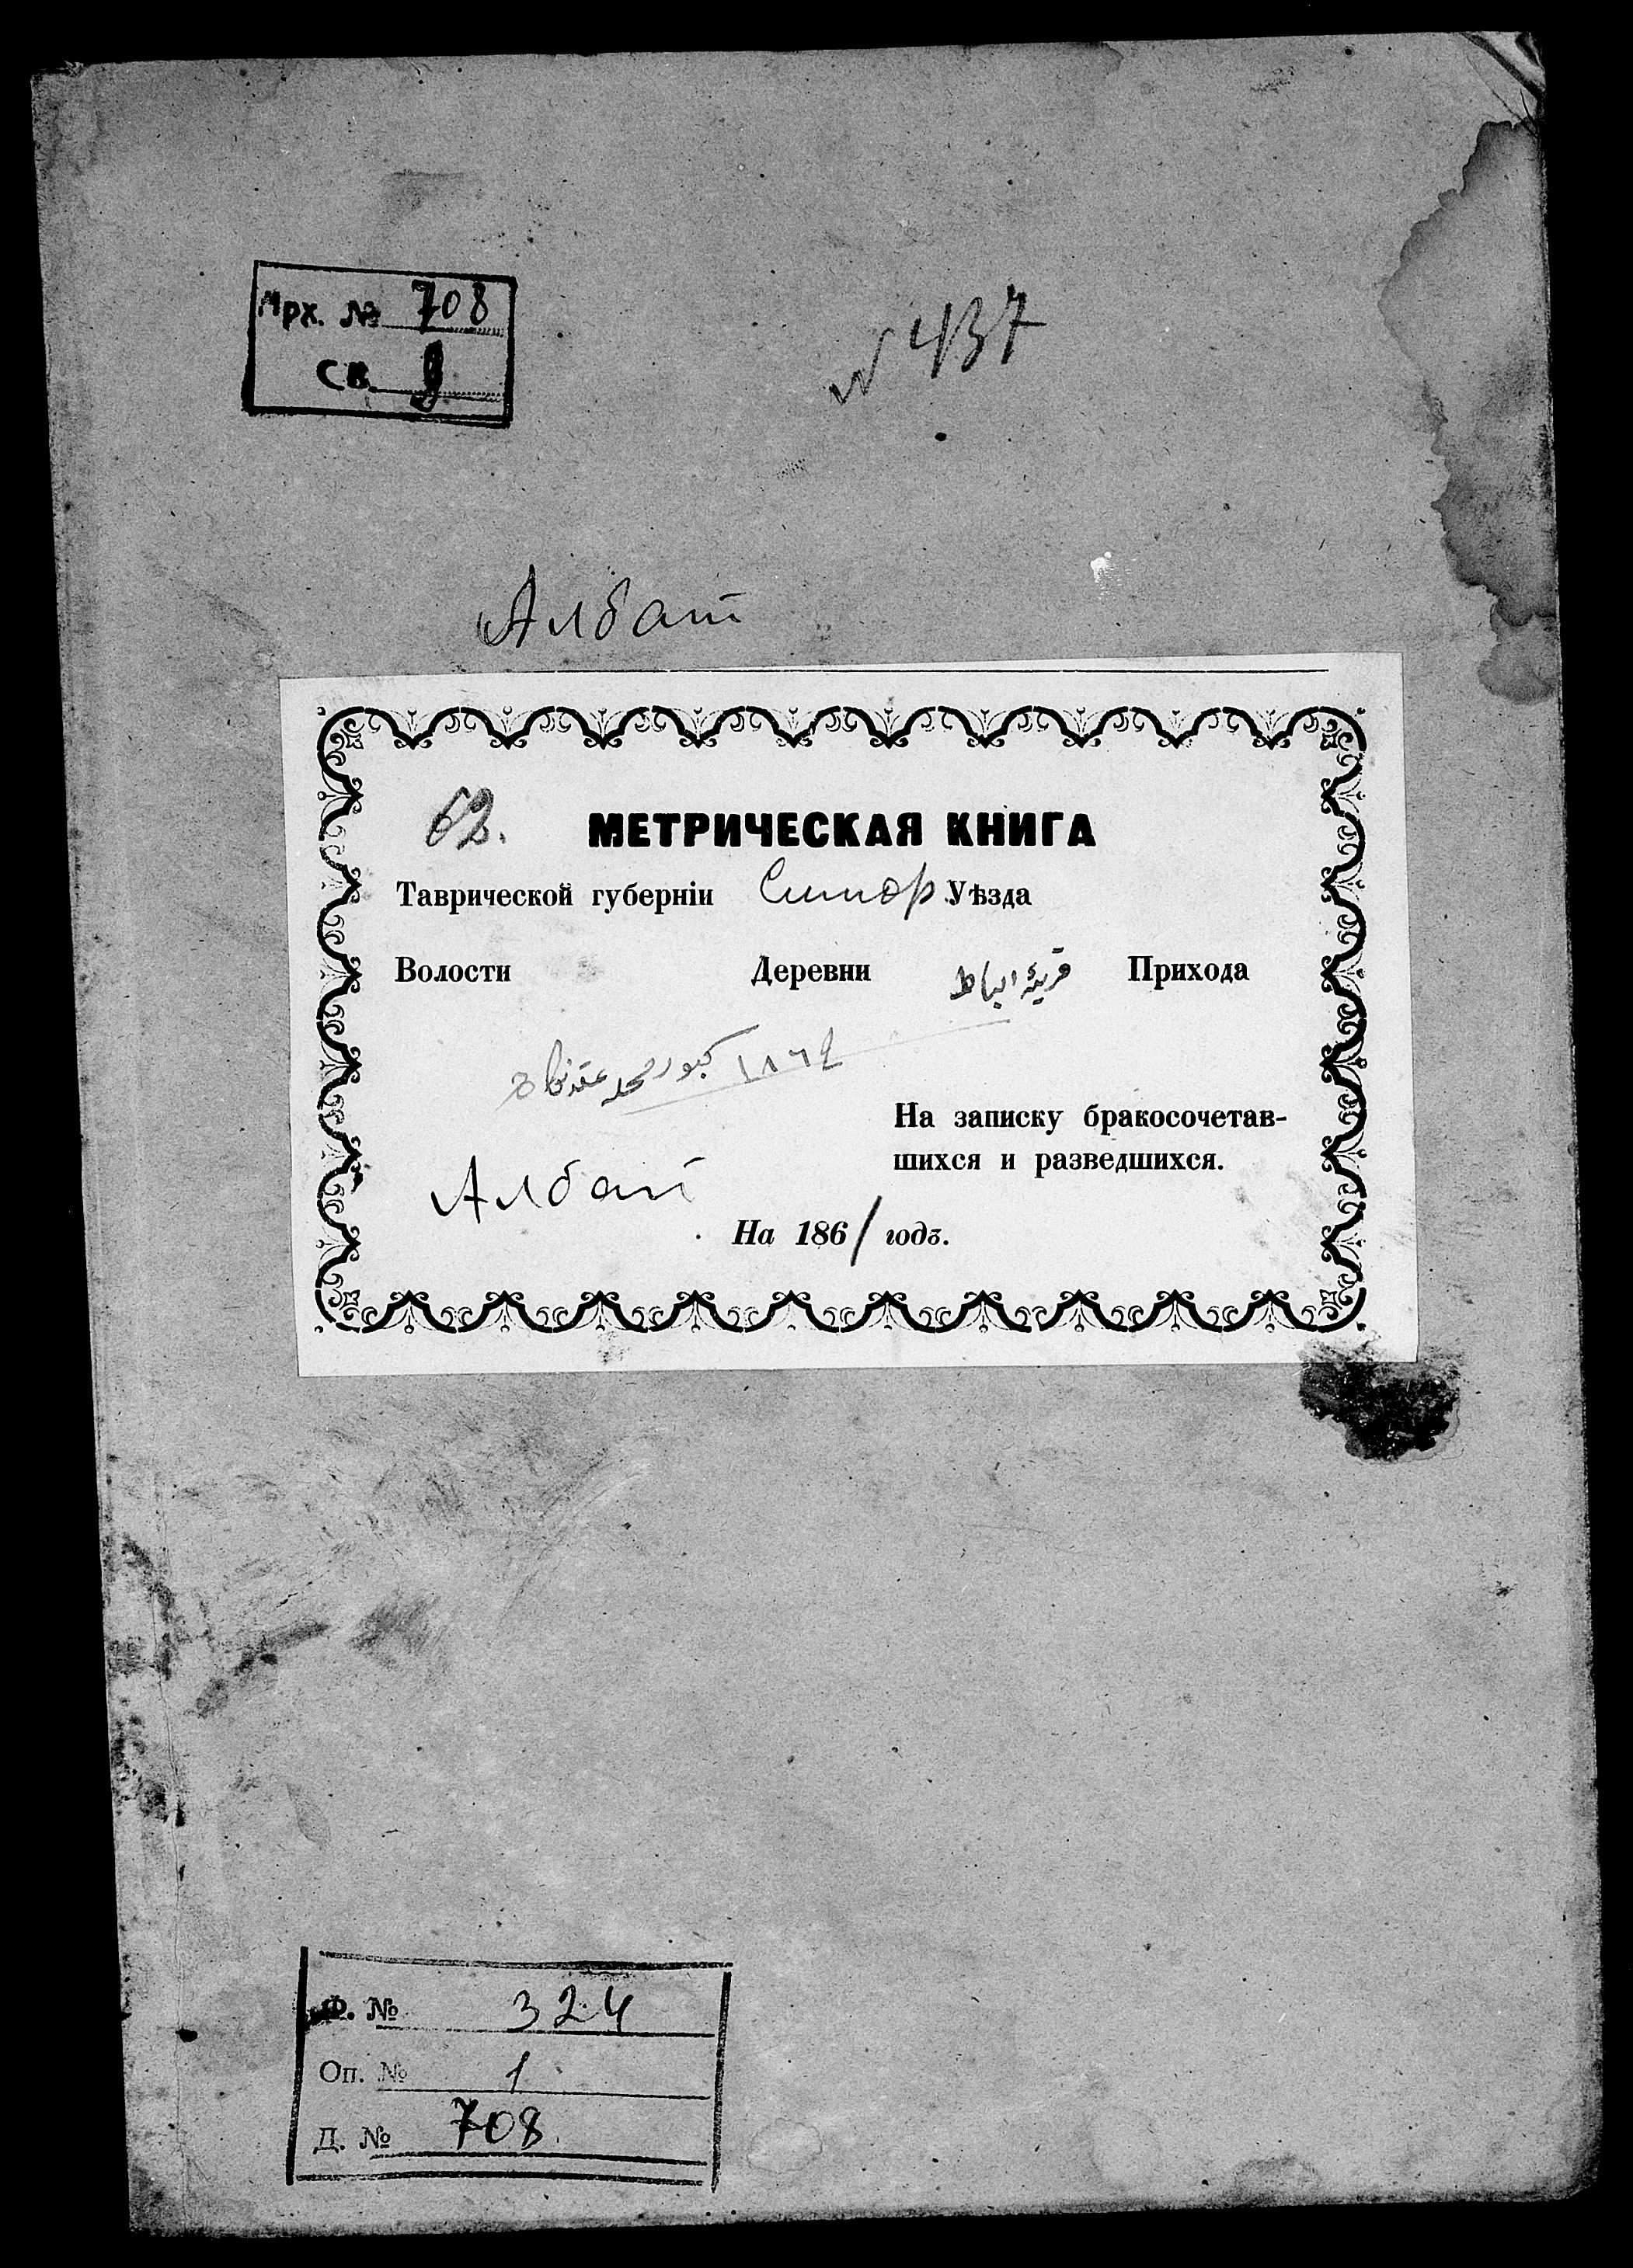 Арх. № 708
Св. 9
№ 437
Албат
62.
МЕТРИЧЕСКАЯ КНИГА
Таврической губерніи Симфр Уѣзда
Волости Деревни قريۀ الباط Прихода
١٨٦٤
На записку бракосочетав-
шихся и разведшихся.
Албат
На 186/ годъ.
Ф. № 324
Оп. № 1
Д. № 708.